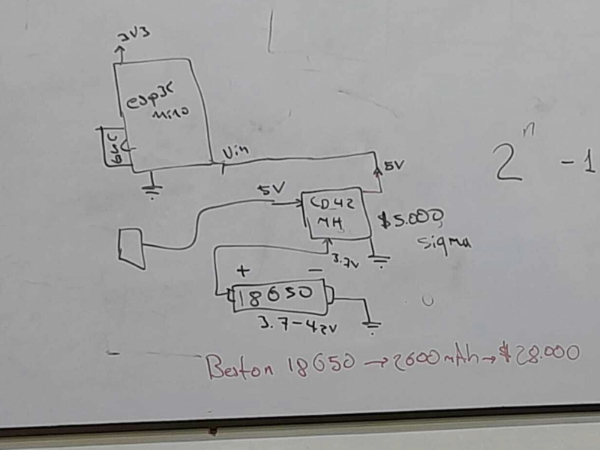 3V3
esp32
mino
USBC
Vin
2ⁿ - 1
5V
5V
CD42
MH
$5.000
sigma
3.7V
+ -
18650
3.7-4.2V
Beston 18650 → 2600mAh → $28.000